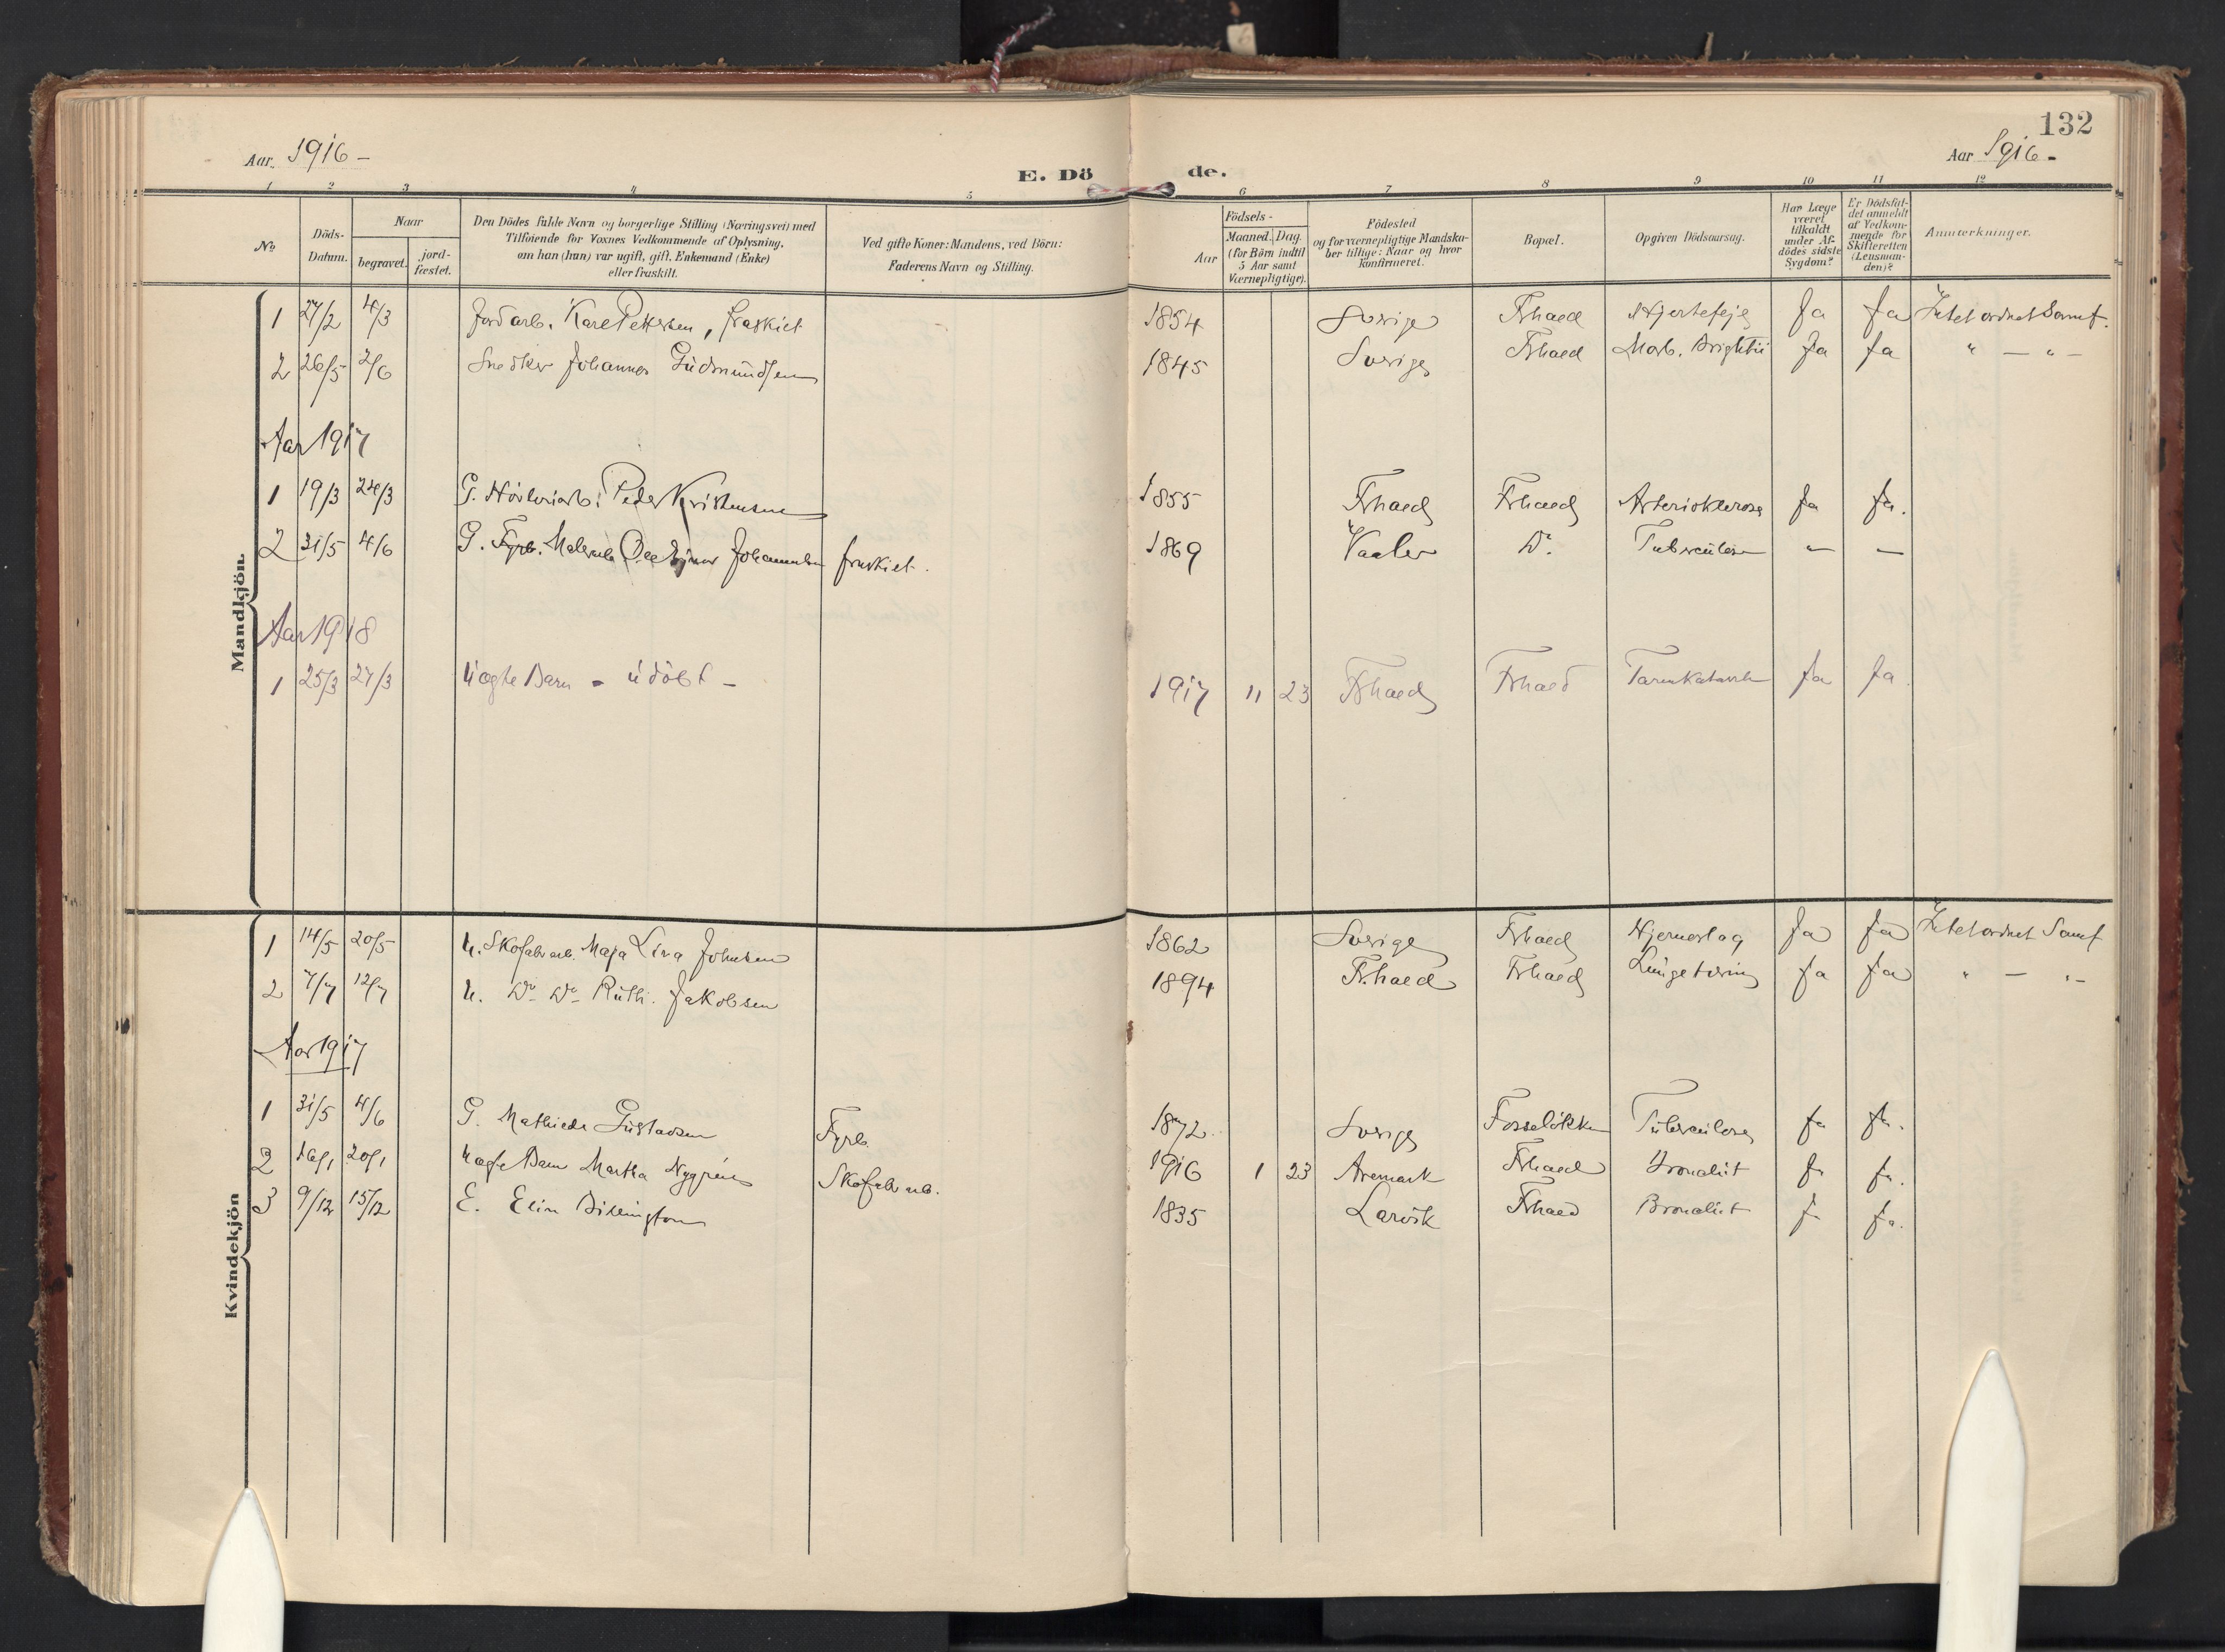 132
Aar 1916 –
Aar 1916 –
E. Dö de.
1 2 3 4 5 6 7 8 9 10 11 12
No.
Döds-Datum.
Naar
begravet.
jord-fæstet.
Den Dödes fulde Navn og borgerlige Stilling (Næringsvei) med
Tilföiende for Voxnes Vedkommende af Oplysning,
om han (hun) var ugift, gift, Enkemand (Enke)
eller fraskilt.
Ved gifte Koner: Mandens, ved Börn:
Faderens Navn og Stilling.
Födsels-
Aar
Maaned. Dag.
(for Börn indtil
5 Aar samt
Værnepligtige).
Födested
og for værnepligtige Mandska-
ber tillige: Naar og hvor
konfirmeret.
Bopæl.
Opgiven Dödsaarsag.
Har Læge
været
tilkaldt
under Af-
dödes sidste
Sygdom?
Er Dödsfal-
det anmeldt
af Vedkom-
mende for
Skifteretten
(Lensman-
den)?
Anmærkninger.
Mandkjön.
1 27/2 4/3 Jordarb. Karl Pettersen, fraskilt 1854 Sverige Frhald Hjertefejl Ja Ja Intet ordnet Samf.
2 26/5 2/6 Snedker Johannes Gudmundsen 1845 Sverige Frhald Morb. Brightii Ja Ja " — " —
Aar 1917
1 19/3 24/3 G. Peder Kristensen 1855 Frhald Frhald Arteriosklerose Ja Ja.
2 31/5 4/6 G. Fyrb. Johannesen fraskilt. 1869 Vaaler Do. Tuberculose — —
Aar 1918
1 25/3 27/3 Uægte Barn – udöbt – 1917 11 23 Frhald Frhald Tarmkatarrh Ja Ja
Kvindekjön
1 14/5 20/5 U. Skofabarb. Maja Lina Johnsen 1862 Sverige Frhald Hjerneslag Ja Ja Intet ordnet Samf
2 7/7 12/7 U. Do Do Ruth Jakobsen 1894 Fr.hald Frhald Lungetæring Ja Ja " — " –
Aar 1917
1 31/5 4/6 G. Mathilde Gustavsen Fyrb. 1872 Sverige Fosseløkken Tuberculose Ja Ja.
2 16/1 20/1 Uægte Barn Martha Nygren Skofabarb. 1916 1 23 Aremark Frhald Bronchit Ja Ja.
3 9/12 15/12 E. Elin 1835 Larvik Frhald Bronchit Ja Ja.